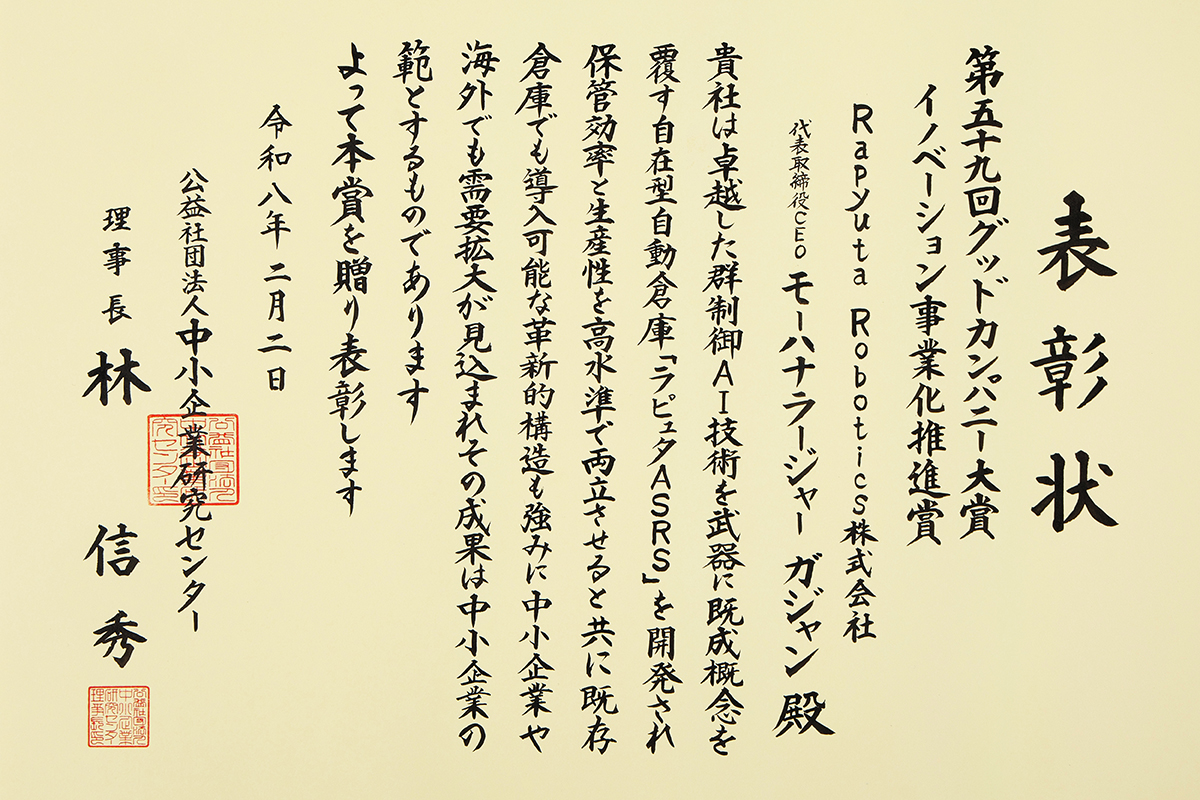 表彰状
第五十九回グッドカンパニー大賞
イノベーション事業化推進賞
Rapyuta Robotics株式会社
代表取締役CEO モーハナラージャー ガジャン 殿
貴社は卓越した群制御AI技術を武器に既成概念を
覆す自在型自動倉庫「ラピュタASRS」を開発され
保管効率と生産性を高水準で両立させると共に既存
倉庫でも導入可能な革新的構造も強みに中小企業や
海外でも需要拡大が見込まれその成果は中小企業の
範とするものであります
よって本賞を贈り表彰します
令和八年二月二日
公益社団法人中小企業研究センター
理事長 林 信秀